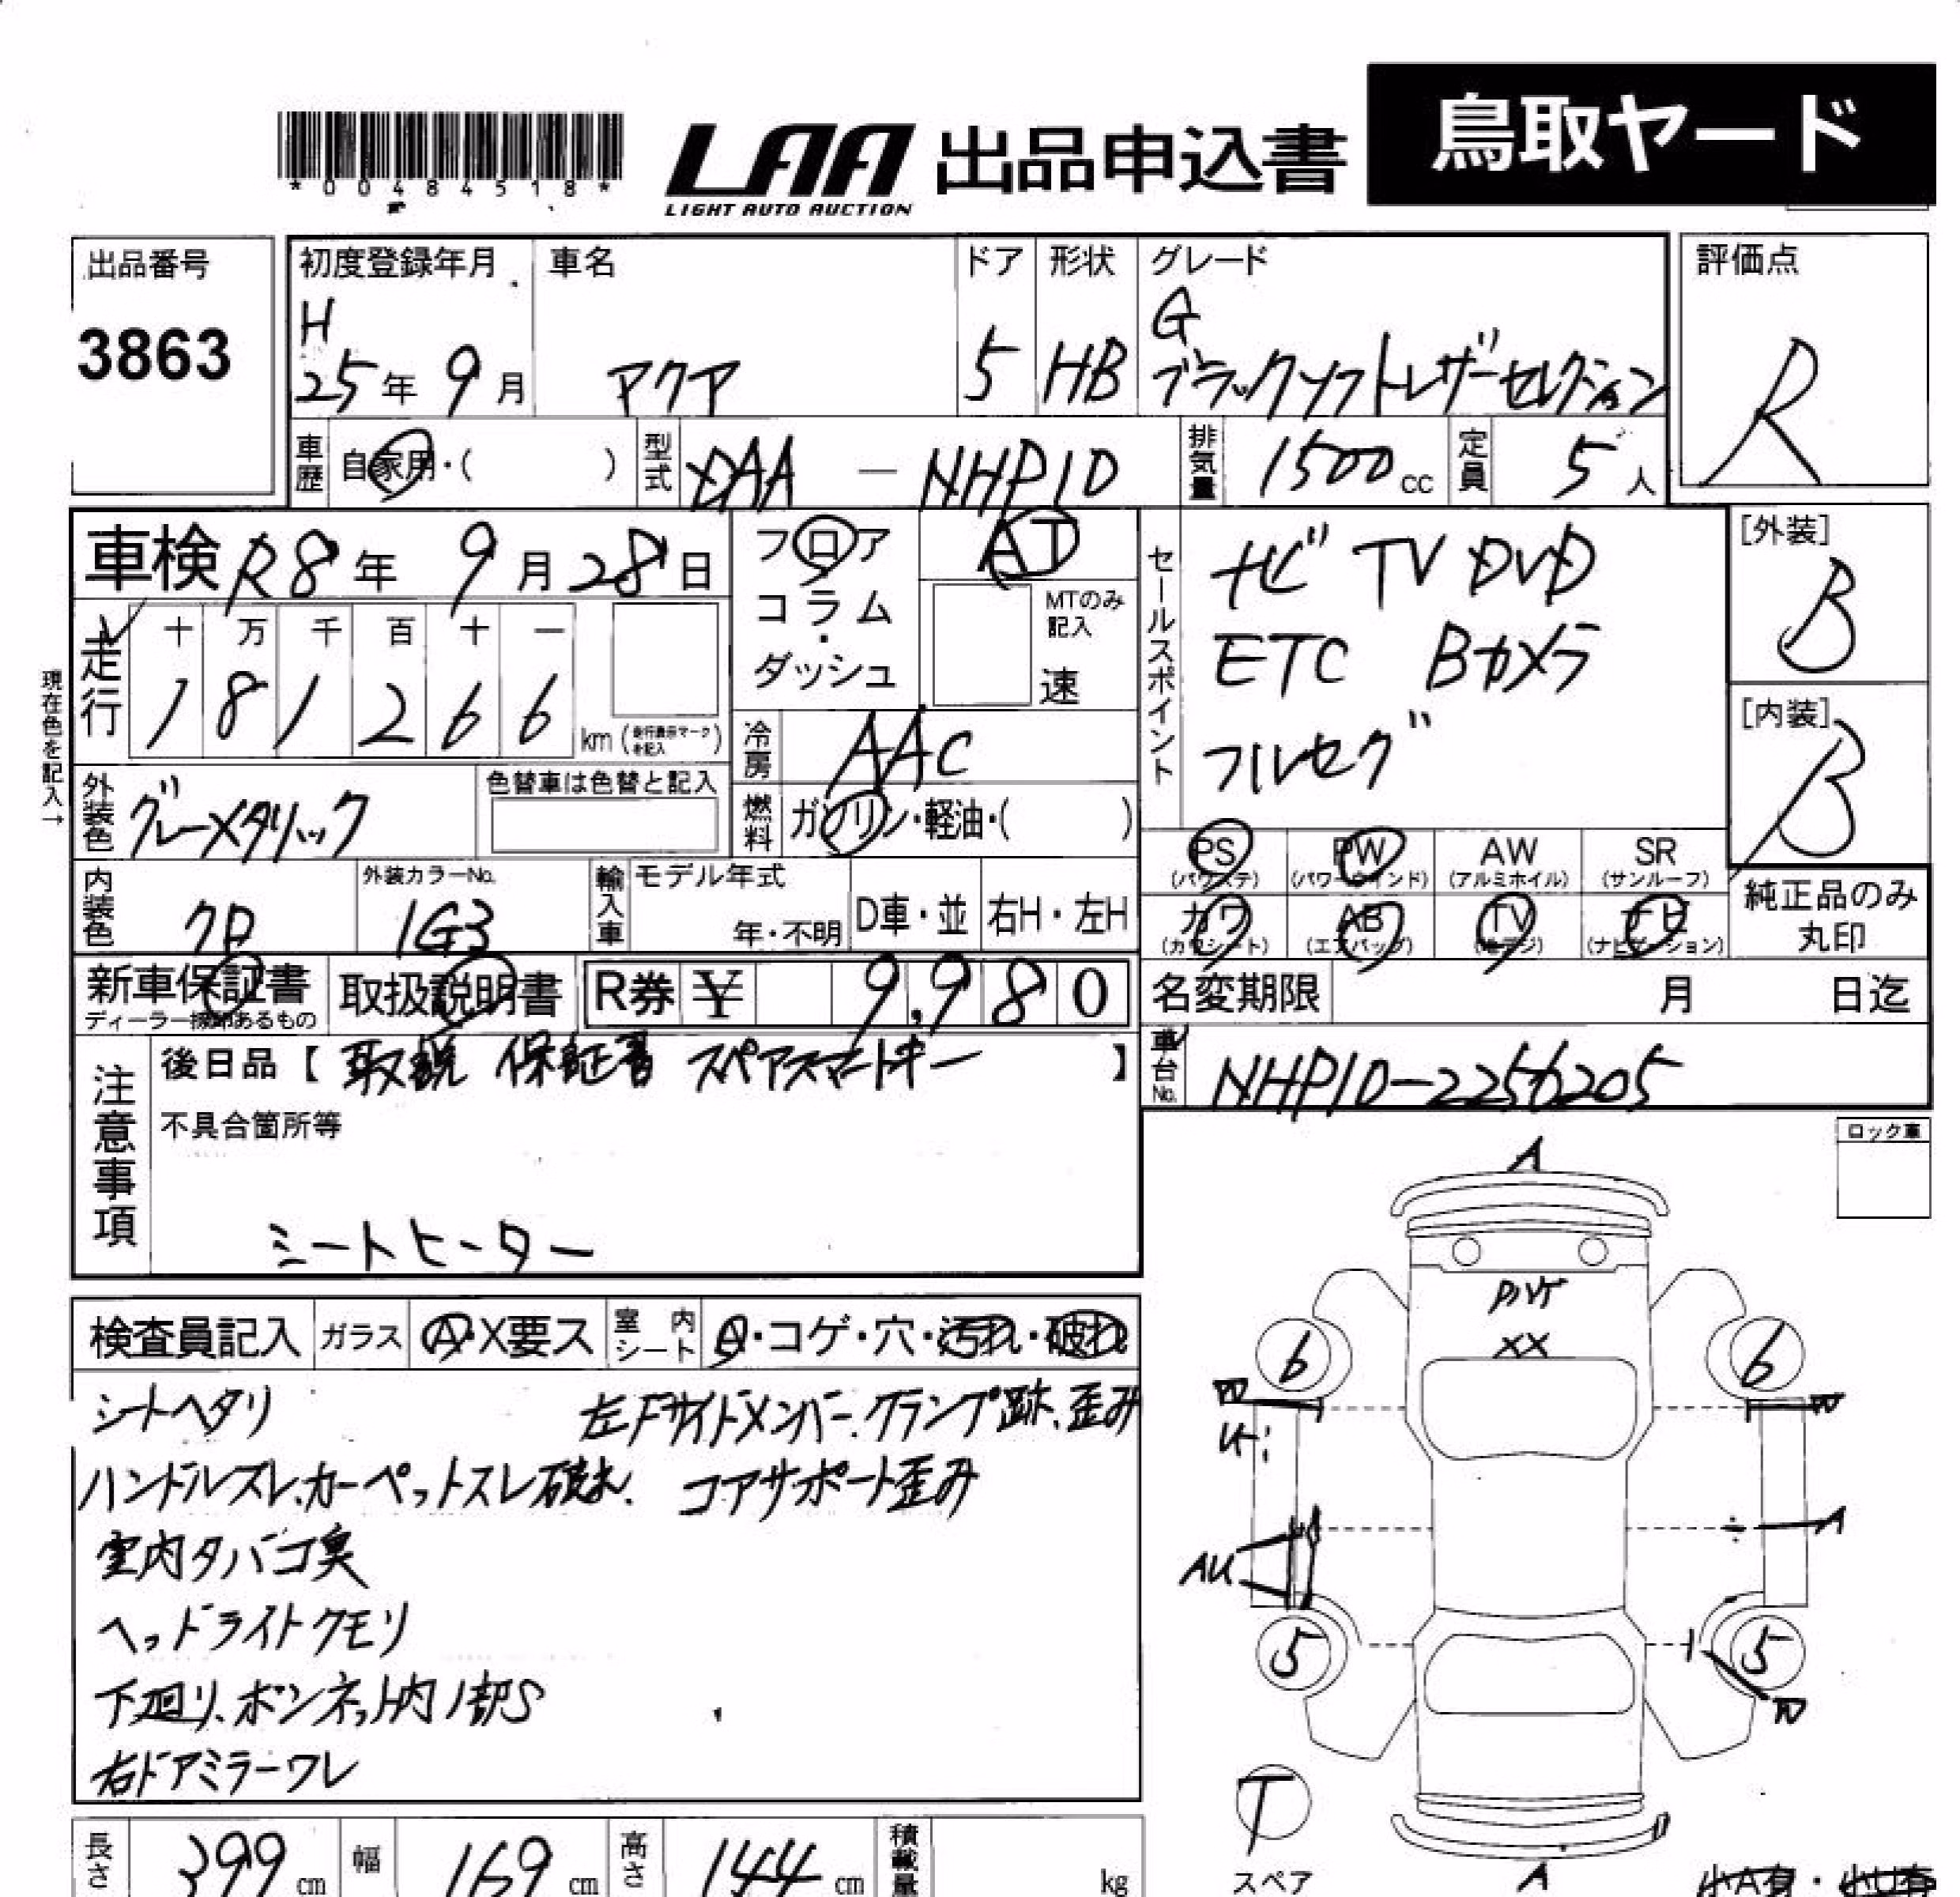 *00484518*
LAA 出品申込書
LIGHT AUTO AUCTION
鳥取ヤード
出品番号
3863
初度登録年月
H
25年 9月
車名
アクア
ドア
5
形状
HB
グレード
G
ブラックソフトレザーセレクション
評価点
R
車歴 自家用・( )
型式 DAA - NHP10
排気量 1500cc
定員 5人
車検 R8年 9月 28日
フロア
コラム
・
ダッシュ
AT
MTのみ
記入
速
セールスポイント
ナビ TV DVD
ETC Bカメラ
フルセグ
[外装]
B
[内装]
B
現在色を記入→
走行
十 万 千 百 十 一
1 8 1 2 6 6
km (走行表示マークを記入)
冷房 AAC
外装色 グレーメタリック
色替車は色替と記入
燃料 ガソリン・軽油・( )
PS
(パワステ)
PW
(パワーウインド)
AW
(アルミホイル)
SR
(サンルーフ)
カワ
(カワシート)
AB
(エアバッグ)
TV
(地デジ)
ナビ
(ナビゲーション)
純正品のみ
丸印
内装色 クロ
外装カラーNo.
1G3
輸入車
モデル年式
年・不明
D車・並
右H・左H
新車保証書
ディーラー捺印あるもの
取扱説明書
R券 ¥ 9,980
名変期限 月 日迄
車台No. NHP10-2256205
注意事項
後日品【 取説 保証書 スペアスマートキー 】
不具合箇所等
シートヒーター
ロック車
検査員記入 ガラス A・X要ス 室内シート A・コゲ・穴・汚れ・破れ
シートヘタリ 左Fサイドメンバー.クランプ跡、歪み
ハンドルスレ、カーペットスレ破れ. コアサポート歪み
室内タバコ臭
ヘッドライトクモリ
下廻り、ボンネット内1部S
右ドアミラーワレ
A
XX
6 6
W W
A
AU
5 5
W
T
スペア
A
長さ 399cm
幅 169cm
高さ 144cm
積載量 kg